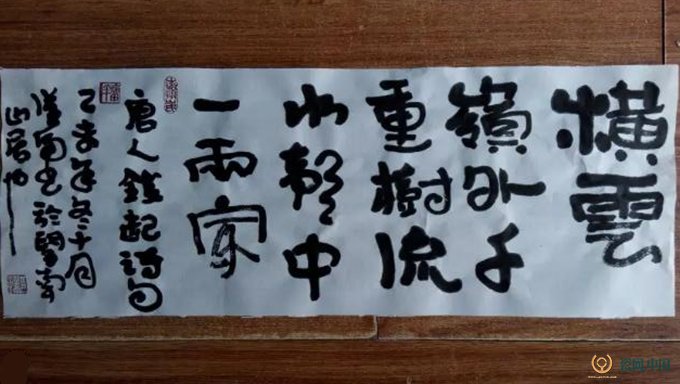 横雲
嶺外千
重樹流
水聲中
一兩家
唐人錢起詩句
乙未年冬十月
书於
山居